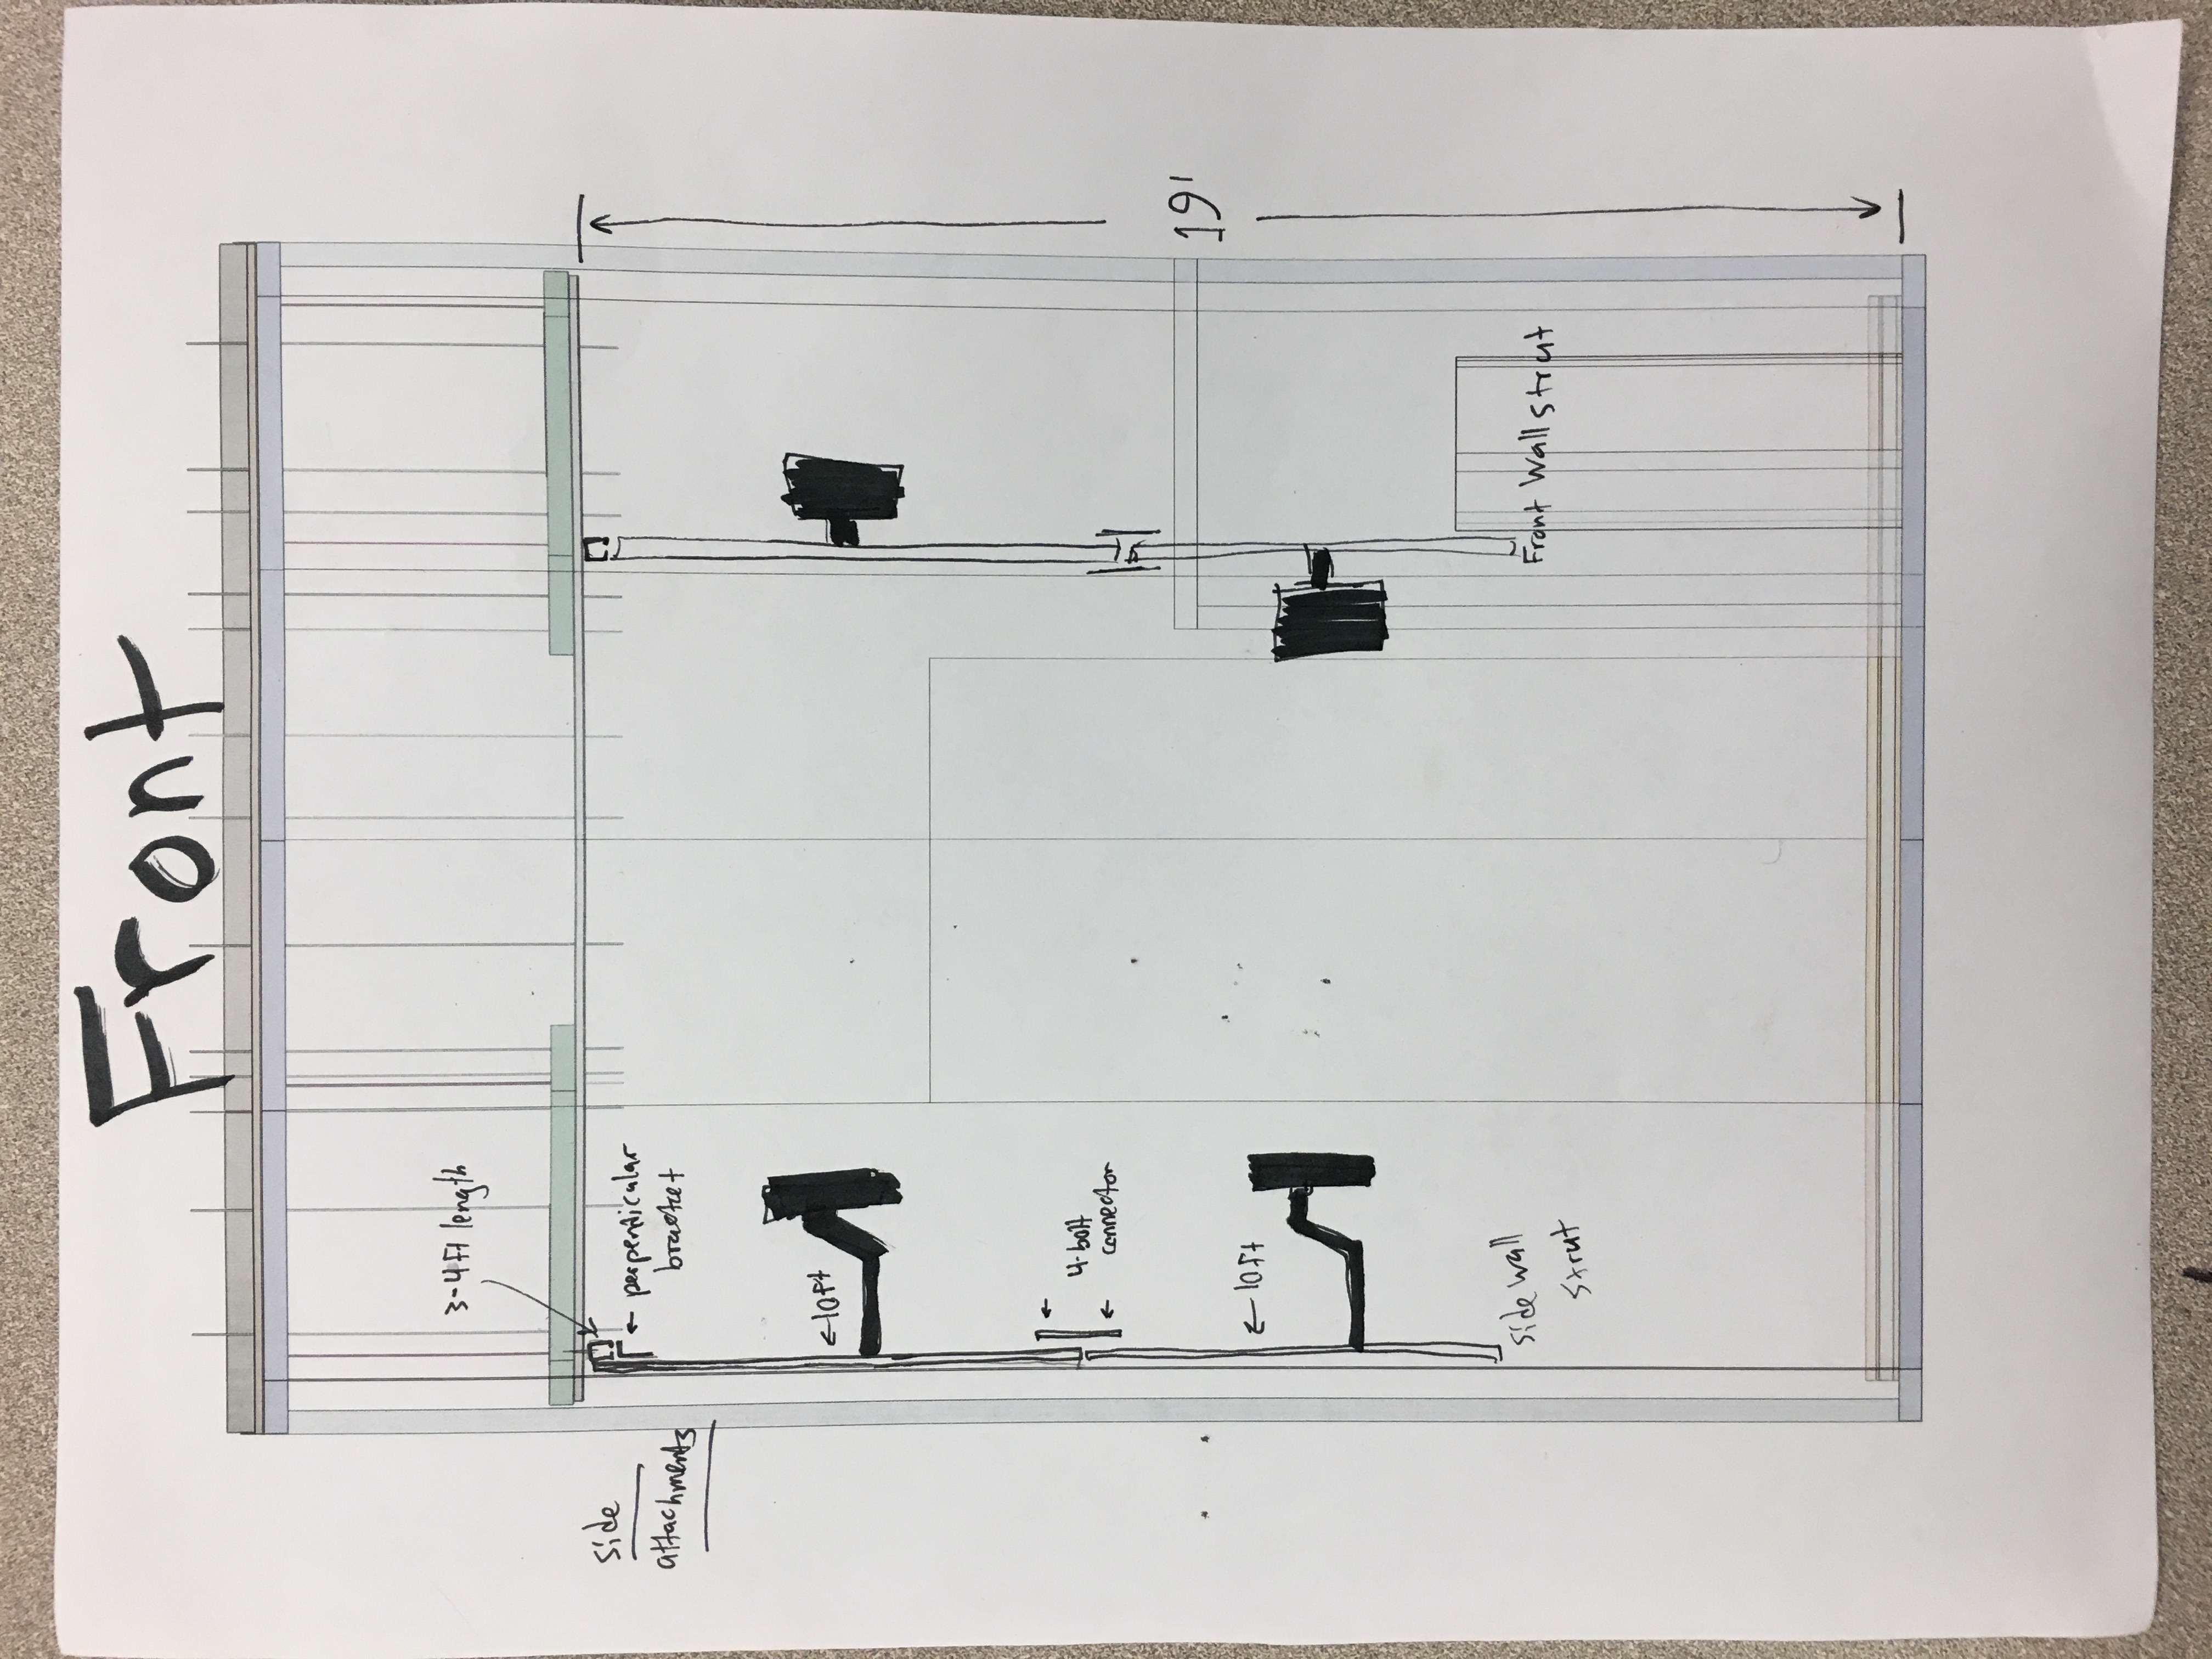 Front
3-4ft length
side
attachments
← perpendicular
bracket
←10ft
4-bolt
connector
19'
← 10ft
side wall
strut
Front Wall strut